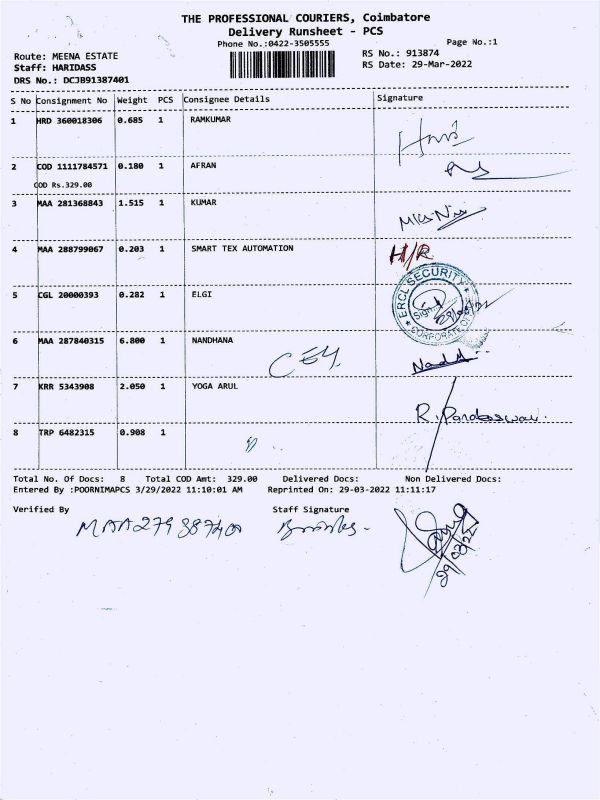 THE PROFESSIONAL COURIERS, Coimbatore
Delivery Runsheet - PCS
Phone No.:0422-3505555
Page No.:1
Route: MEENA ESTATE
RS No.: 913874
Staff: HARIDASS
RS Date: 29-Mar-2022
DRS No.: DCJB91387401
S No Consignment No Weight PCS Consignee Details Signature
1 HRD 360018306 0.685 1 RAMKUMAR
2 COD 1111784571 0.180 1 AFRAN
COD Rs.329.00
3 MAA 281368843 1.515 1 KUMAR
4 MAA 288799067 0.203 1 SMART TEX AUTOMATION H/R
5 CGL 20000393 0.282 1 ELGI
ERCL SECURITY
Sign.
CORPORATE OFF
6 MAA 287840315 6.800 1 NANDHANA
7 KRR 5343908 2.050 1 YOGA ARUL
8 TRP 6482315 0.908 1
Total No. Of Docs: 8 Total COD Amt: 329.00 Delivered Docs: Non Delivered Docs:
Entered By :POORNIMAPCS 3/29/2022 11:10:01 AM Reprinted On: 29-03-2022 11:11:17
Verified By Staff Signature
29/03/22